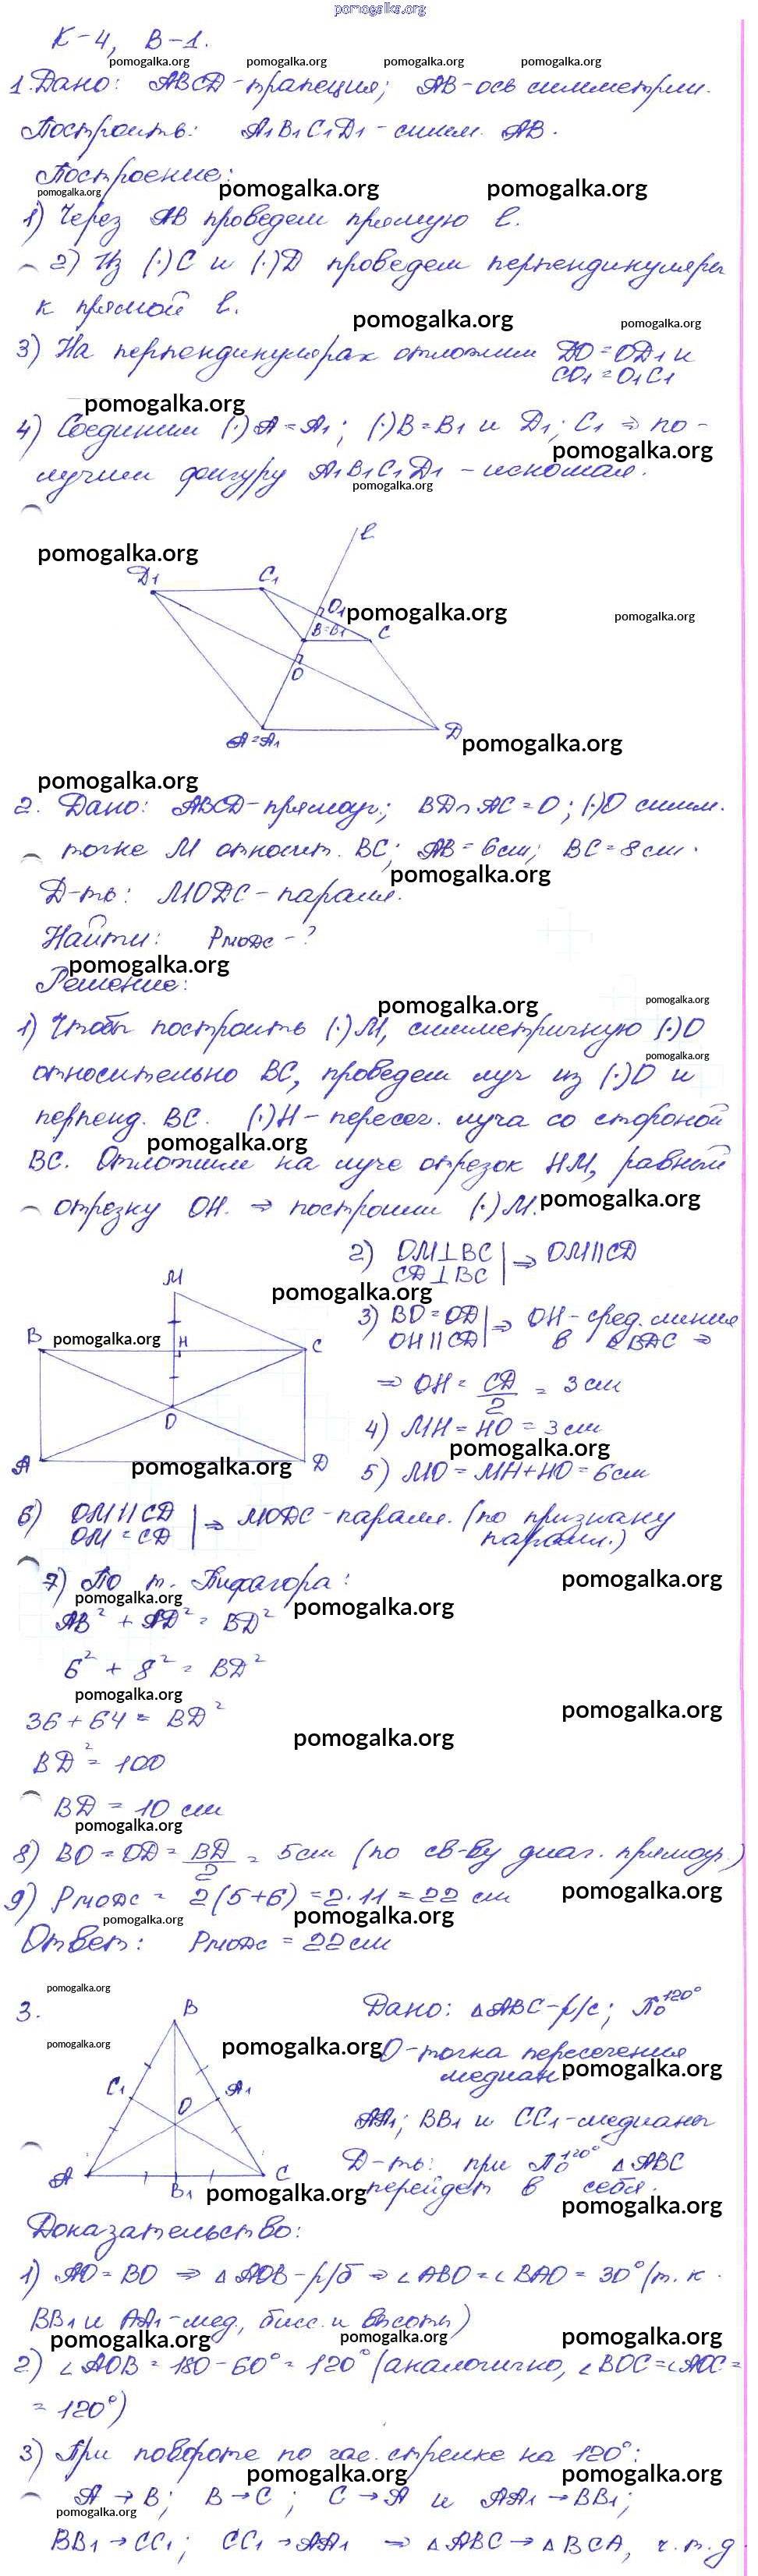 pomogalka.org
К-4, В-1.
pomogalka.org pomogalka.org pomogalka.org pomogalka.org
1. Дано: ABCD-трапеция; AB-ось симметрии.
Построить: A₁B₁C₁D₁-симм. AB.
Построение:
pomogalka.org pomogalka.org pomogalka.org
1) Через AB проведем прямую l.
2) Из (·)C и (·)D проведем перпендикуляры
к прямой l.
pomogalka.org pomogalka.org
3) На перпендикулярах отложим DO=OD₁ и
CO₁=O₁C₁
pomogalka.org
4) Соединим (·)A=A₁; (·)B=B₁ и D₁; C₁ ⇒ по-
pomogalka.org
лучим фигуру A₁B₁C₁D₁ - искомая.
pomogalka.org
l
pomogalka.org
D₁ C₁
O₁ pomogalka.org pomogalka.org
B=B₁ C
O
A=A₁ D pomogalka.org
pomogalka.org
2. Дано: ABCD-прямоуг.; BD∩AC=O; (·)O симм.
точке M относит. BC; AB=6см; BC=8см.
pomogalka.org
Д-ть: MODC-паралл.
Найти: P_MODC - ?
pomogalka.org
Решение:
pomogalka.org pomogalka.org
1) Чтобы построить (·)M, симметричную (·)O
pomogalka.org
относительно BC, проведем луч из (·)O и
перпенд. BC. (·)H - пересеч. луча со стороной
pomogalka.org
BC. Отложим на луче отрезок HM, равный
отрезку OH. ⇒ построили (·)M. pomogalka.org
2) OM⊥BC | ⇒ OM||CD
CD⊥BC
M
pomogalka.org
3) BO=OD | ⇒ OH-сред. линия
OH||CD в ∆BDC ⇒
B pomogalka.org H C
⇒ OH = CD/2 = 3см
O
4) MH=HO=3см
pomogalka.org
A pomogalka.org D
5) MO=MH+HO=6см
6) OM||CD | ⇒ MODC-паралл. (по признаку
OM=CD паралл.)
7) По т. Пифагора: pomogalka.org
pomogalka.org pomogalka.org
AB²+AD²=BD²
6²+8²=BD²
pomogalka.org pomogalka.org
36+64=BD²
pomogalka.org
BD²=100
BD=10 см
pomogalka.org
8) BO=OD=BD/2=5см (по св-ву диаг. прямоуг.)
9) P_MODC = 2(5+6)=2·11=22 см pomogalka.org
pomogalka.org pomogalka.org
Ответ: P_MODC=22см
pomogalka.org
3. B Дано: ∆ABC-р/с; П_O^120°
pomogalka.org pomogalka.org O-точка пересечения
медиан. pomogalka.org
C₁ A₁ O
AA₁; BB₁ и CC₁-медианы
Д-ть: при П_O^120° ∆ABC
A B₁ C
pomogalka.org перейдет в себя.
pomogalka.org
Доказательство:
1) AO=BO ⇒ ∆AOB-р/б ⇒ ∠ABO=∠BAO=30° (т.к.
BB₁ и AA₁-мед., бисс. и высоты)
pomogalka.org pomogalka.org pomogalka.org
2) ∠AOB=180-60°=120° (аналогично, ∠BOC=∠AOC=
=120°)
3) При повороте по час. стрелке на 120°:
pomogalka.org pomogalka.org
A→B; B→C; C→A и AA₁→BB₁;
pomogalka.org
BB₁→CC₁; CC₁→AA₁ ⇒ ∆ABC→∆BCA, ч.т.д